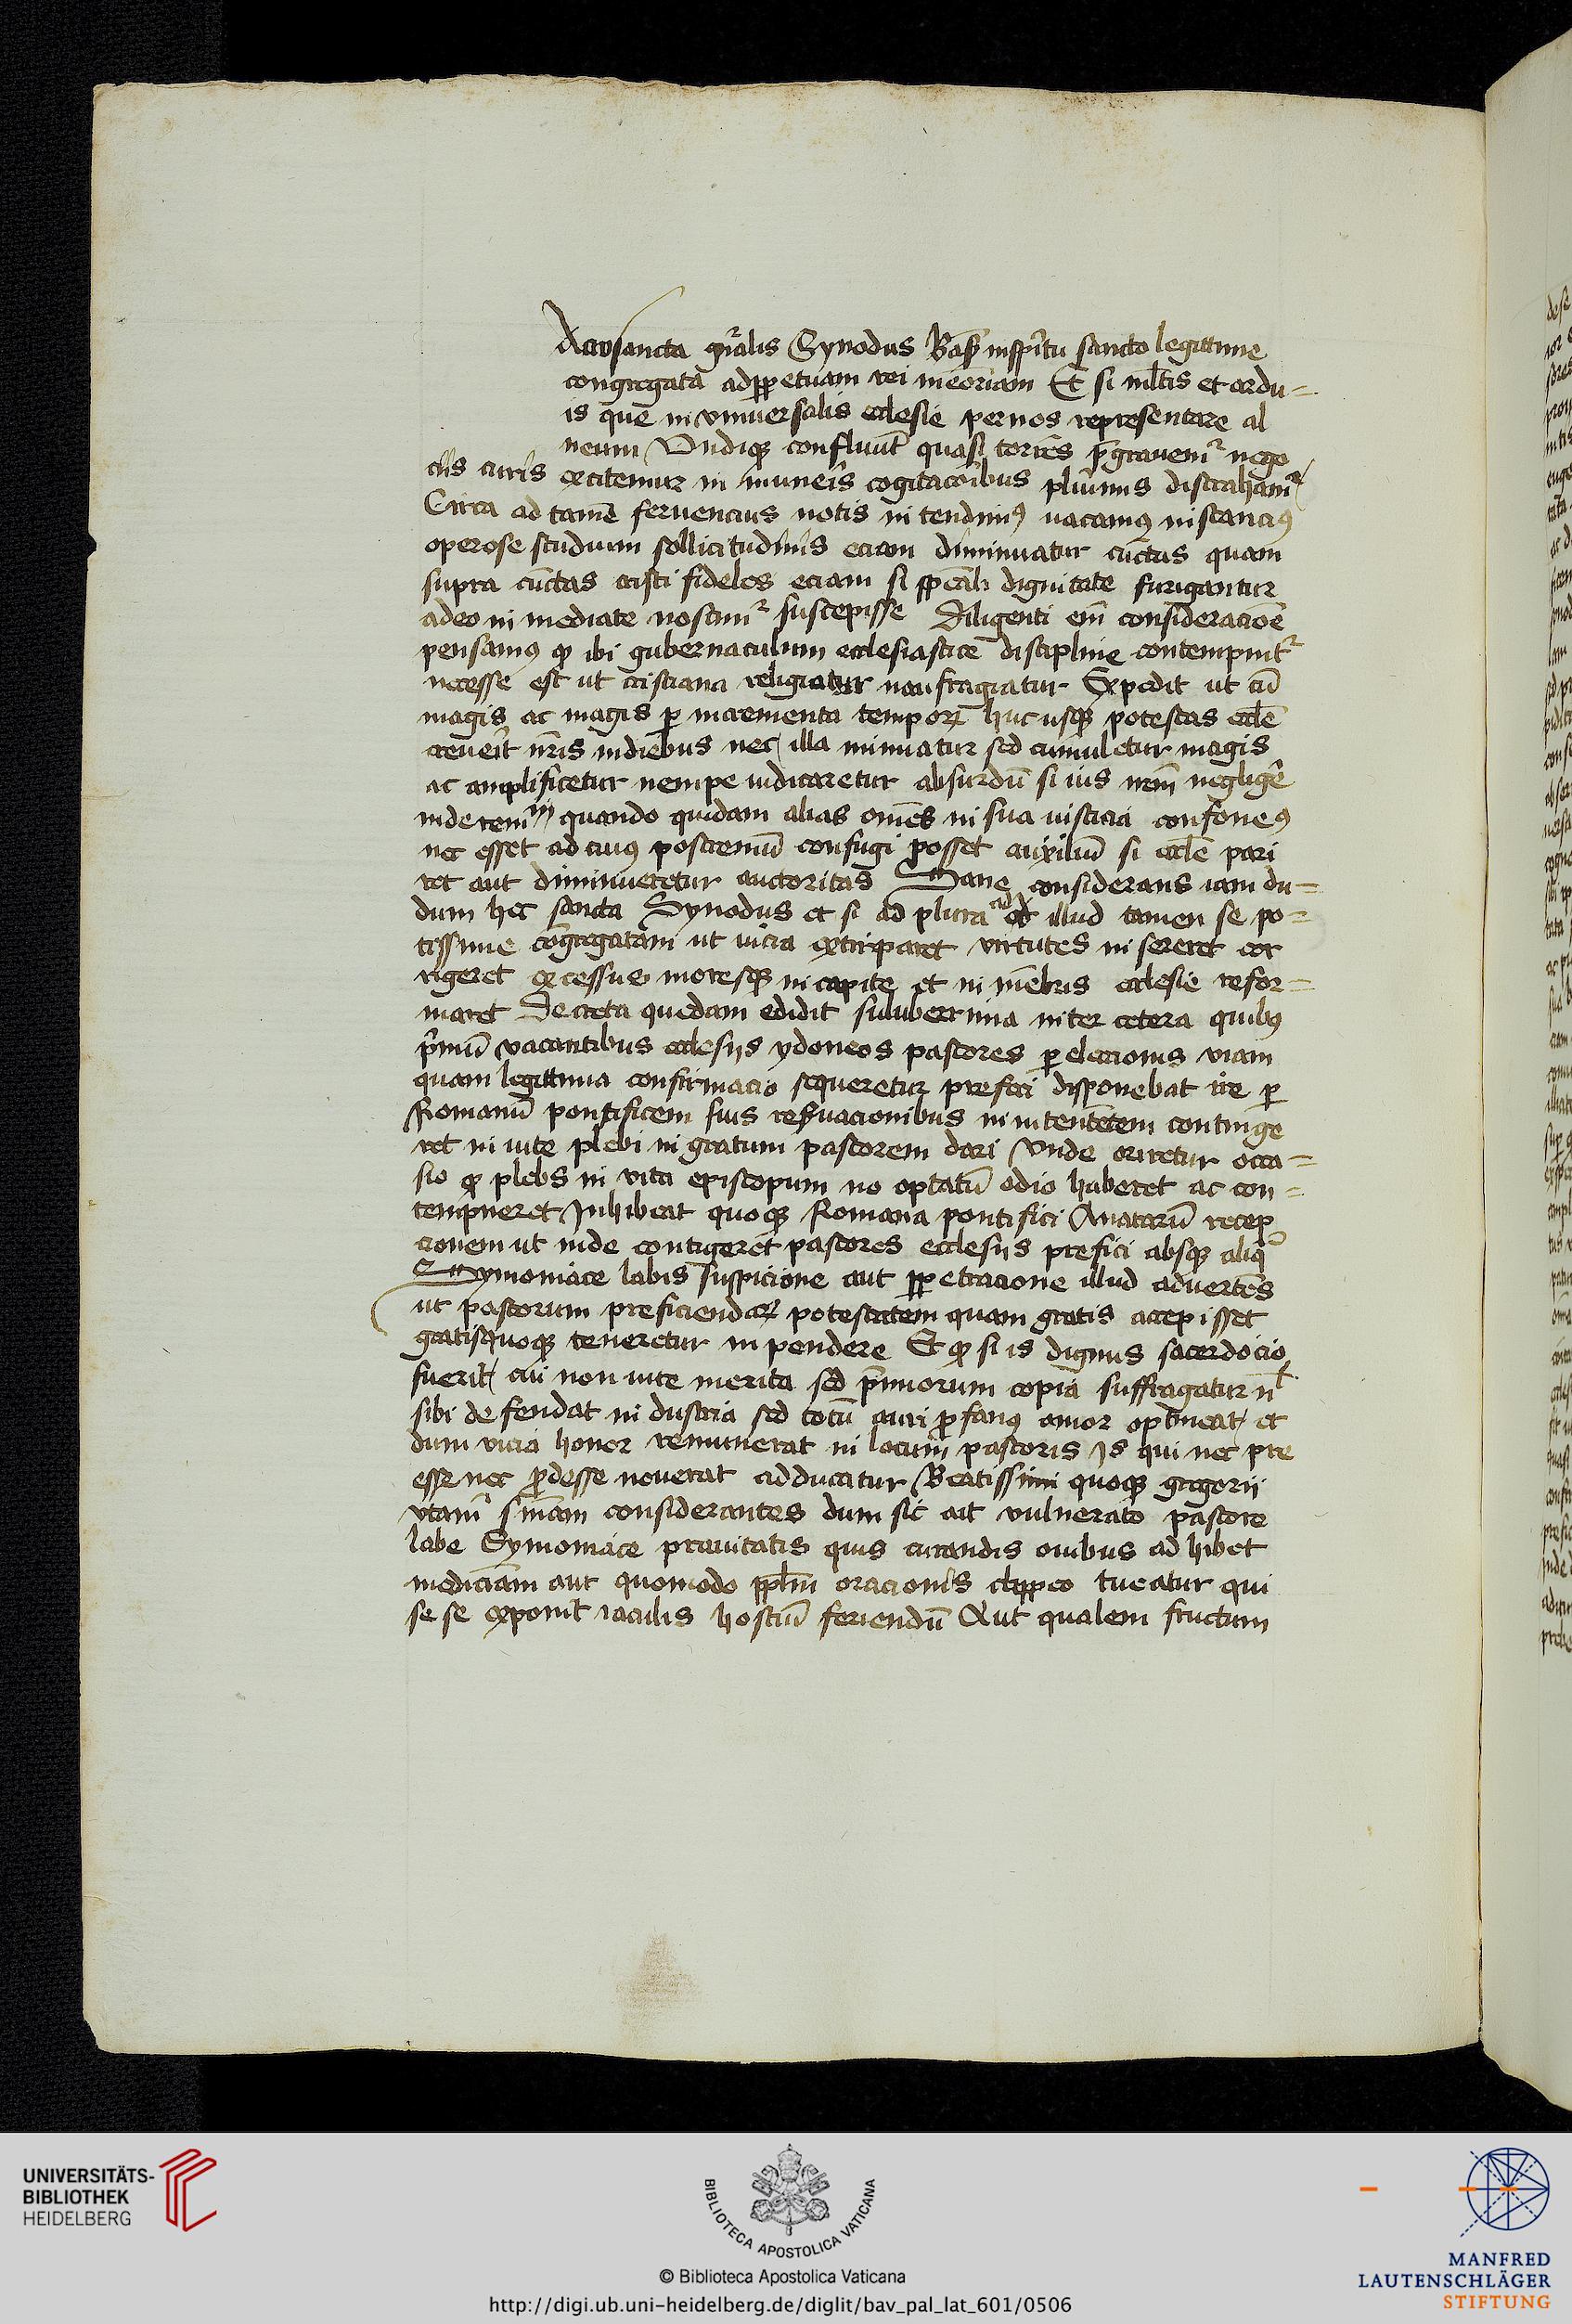 Acrosancta gn̄alis Synodus Basł inspūtu sancto legittime
congregata adppetuam rei meoriam Et si ml̄tis et ardu-
is que in vniuersalis ecclesie per nos representare al
neum Vndiqꝫ confluūt quasi torrēs p̄grauem̄ nego
cijs curis excitemur in muneris cogitacōibus plurimis distraham̄
Circa ad tamē feruencius notis in tendimꝰ vacamꝰ instanciꝰ
operose studium sollicitudinis eciam diminuatur cūctas quam
supra cūctas cristi fideles eciam si sp̄cāli dignitate furigantur
adeo in mediate noscim̄ suscepisse Diligenti em̄ consideracioē
pensamꝰ qꝫ ibi gubernaculum ecclesiastice discipline contempnit̄
necesse est ut cristiana religiatur naufragiatur Expedit ut cū
magis ac magis ꝑ incrementa temporꝝ huc usqꝫ potestas ecclē
creuerit nr̄is indiebus nec illa minuatur sed cumuletur magis
ac amplificetur nempe iudicaretur absurdū si ius nr̄m negligē
inderem̄ quando quidam alias omēs in sua iusticia confoneꝰ
nec esset ad cuiꝰ postremū confugi posset auxiliū si ecclē pari
ret aut diminueretur auctoritas Sane considerans iam du-
dum hec sancta Synodus et si ad plura ad illud tamen se po-
tissime cōgregatam ut uicia extirparet virtutes in sereret cor
rigeret excessus moresqꝫ in capite et in mēbris ecclesie refor-
maret Decreta quedam edidit saluberrima inter cetera quibꝰ
p̄mū vacantibus ecclesijs ydoneos pastores ꝑ eleccionis viam
quam legittima confirmacio sequeretur prefici disponebat ne ꝑ
Romanū pontificem suis reseruacionibus in intentētem continge
ret in uite plebi in gratum pastorem dari Vnde oriretur occa-
sio qꝫ plebs in vita episcopum no optatū odio haberet ac con-
tempneret Inhibeat quoqꝫ Romana pontifici Anatarū recep
cionem ut inde contigeret pastores ecclesijs prefici absqꝫ aliq̄
Symoniace labis suspicione aut ꝑpetracione illud aduertēs
ut pastorum preficiendarꝝ potestatem quam gratis accepisset
gratisquoqꝫ teneretur in pendere Et qꝫ si is dignus sacerdocio
fuerit cui non iure merita sed p̄miorum copia suffragatur nl̄
sibi defendat in dustria sed totū auri ꝓfanꝰ amor optineat et
dum vicia honor remunerat in locum pastoris Is qui nec pre
esse nec ꝓdesse nouerat adducatur Beatissimi quoqꝫ gregorii
vtam̄ sn̄iam considerantes dum sic ait vulnerato pastore
labe Symoniace prauitatis quis curandis ouibus ad hibet
medicinam aut quomodo ppl̄m oracionis clippeo tueatur qui
se se exponit iaculis hostiū feriendū Aut qualem fructum
UNIVERSITÄTS-
BIBLIOTHEK
HEIDELBERG
BIBLIOTECA APOSTOLICA VATICANA
© Biblioteca Apostolica Vaticana
http://digi.ub.uni-heidelberg.de/diglit/bav_pal_lat_601/0506
MANFRED
LAUTENSCHLÄGER
STIFTUNG